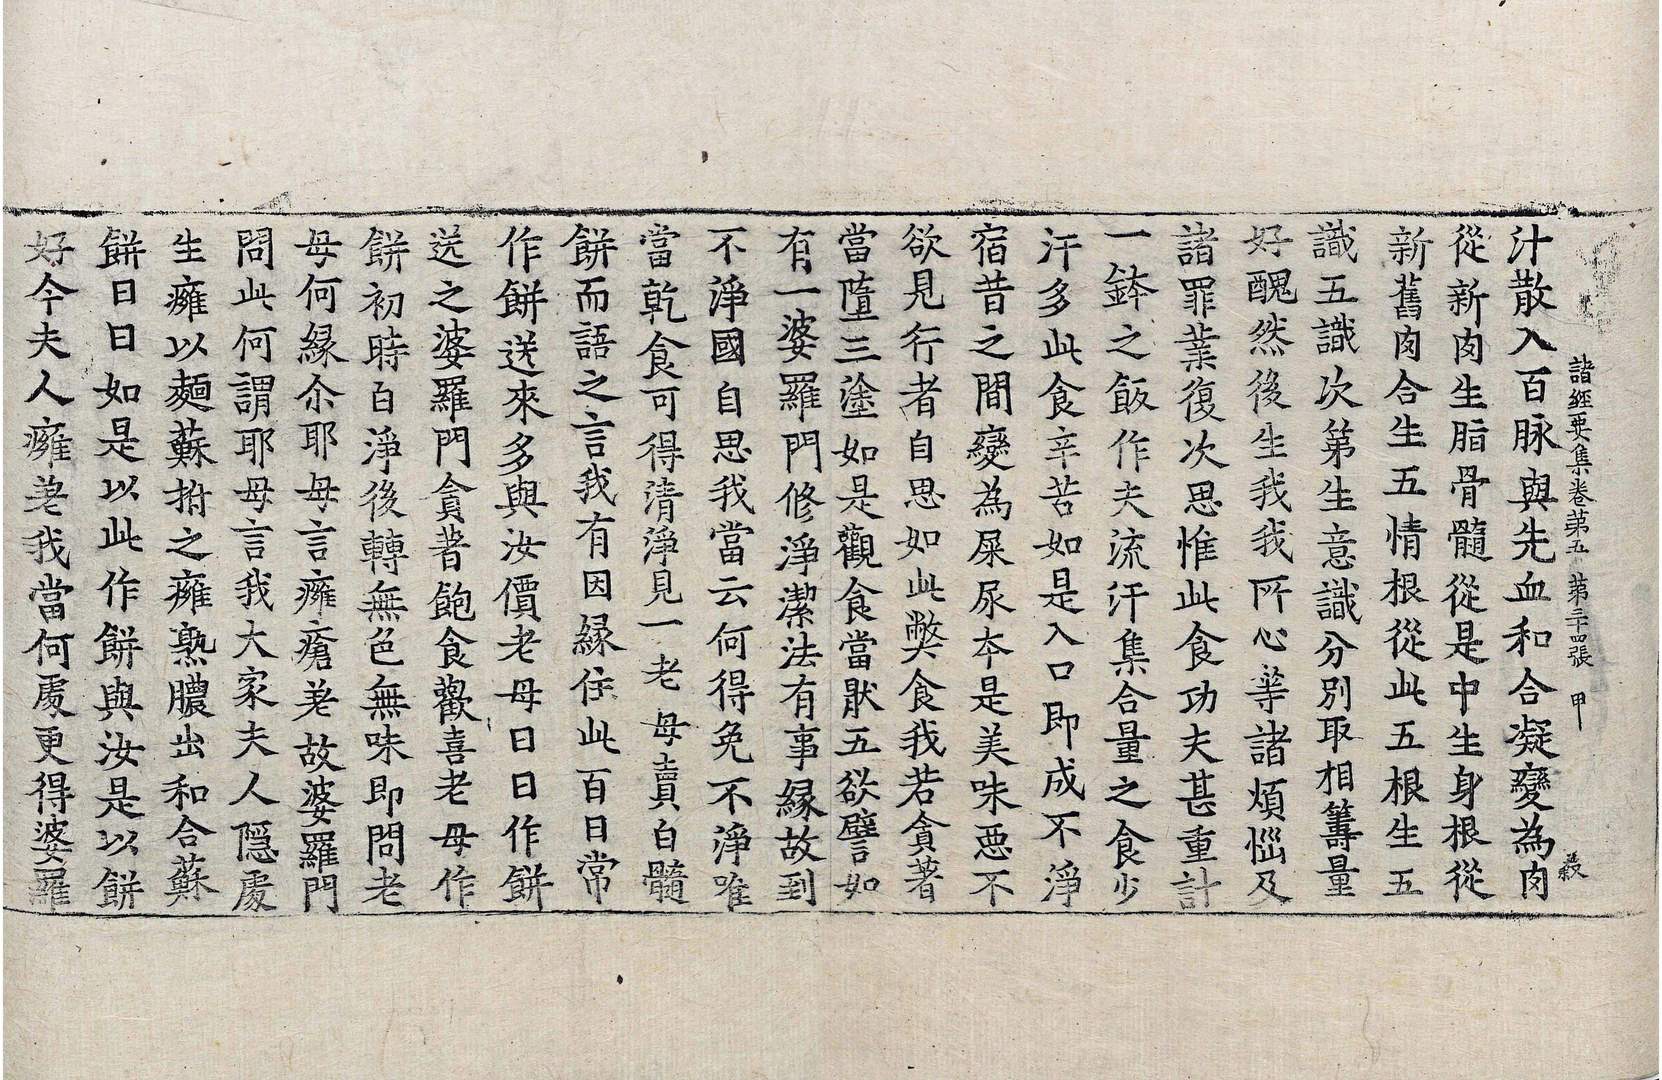 諸經要集卷第五　第三十四張　甲　義
汁散入百脉與先血和合凝變為肉
從新肉生脂骨髓從是中生身根從
新舊肉合生五情根從此五根生五
識五識次第生意識分別取相籌量
好醜然後生我我所心等諸煩惱及
諸罪業復次思惟此食功夫甚重計
一鉢之飯作夫流汗集合量之食少
汗多此食辛苦如是入口即成不淨
宿昔之間變為屎尿本是美味惡不
欲見行者自思如此弊食我若貪著
當墮三塗如是觀食當猒五欲譬如
有一婆羅門修淨潔法有事緣故到
不淨國自思我當云何得免不淨唯
當乾食可得清淨見一老母賣白髓
餅而語之言我有因緣住此百日常
作餅送來多與汝價老母日日作餅
送之婆羅門貪著飽食歡喜老母作
餅初時白淨後轉無色無味即問老
母何緣尒耶母言癰瘡差故婆羅門
問此何謂耶母言我大家夫人隱處
生癰以麵蘇拊之癰熟膿出和合蘇
餅日日如是以此作餅與汝是以餅
好今夫人癰差我當何處更得婆羅